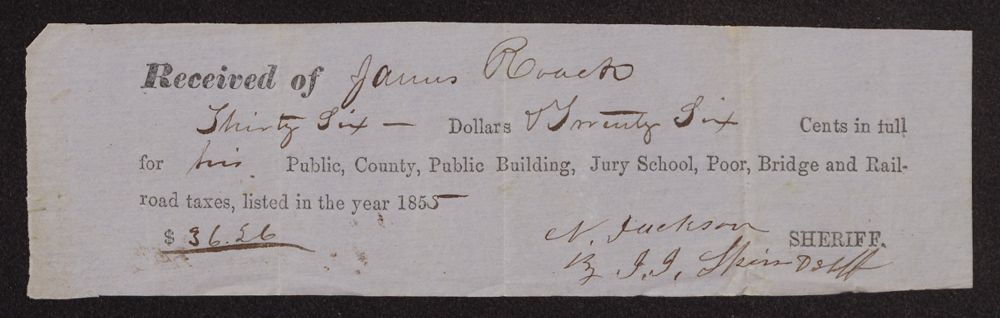 Received of James Roach
Thirty Six — Dollars & Twenty Six Cents in full
for his Public, County, Public Building, Jury School, Poor, Bridge and Rail-
road taxes, listed in the year 1855
$ 36.26
N. Jackson SHERIFF.
By J. J.